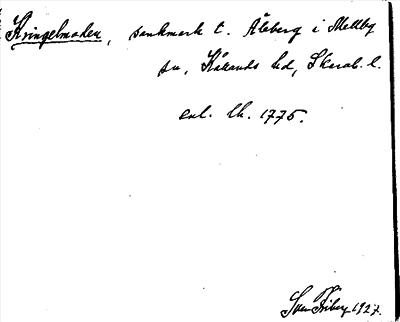 Kringelmaden, sankmark t. Åleberg i Mellby
sn, Kållands hd, Skarab. l.
enl. lh. 1775.
Sven Friberg 1927.